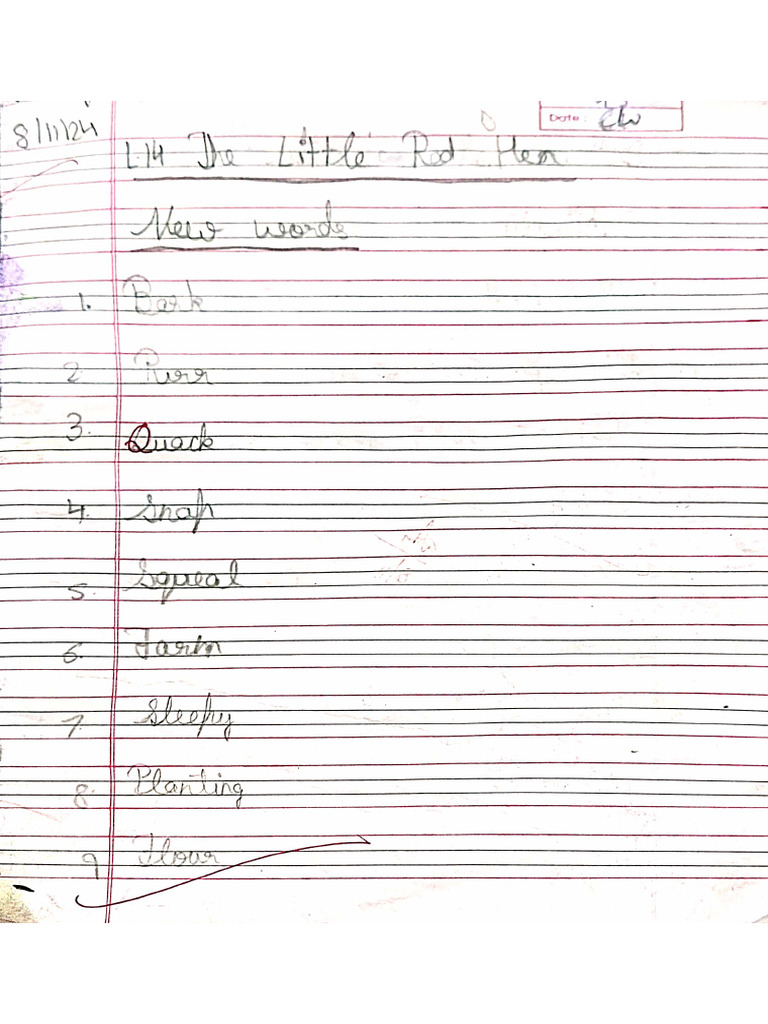 8/11/24
Date: CW
L-14 The Little Red Hen
New words
1. Bark
2. Purr
3. Quack
4. Snap
5. Squeal
6. Farm
7. Sleepy
8. Planting
9 Flour